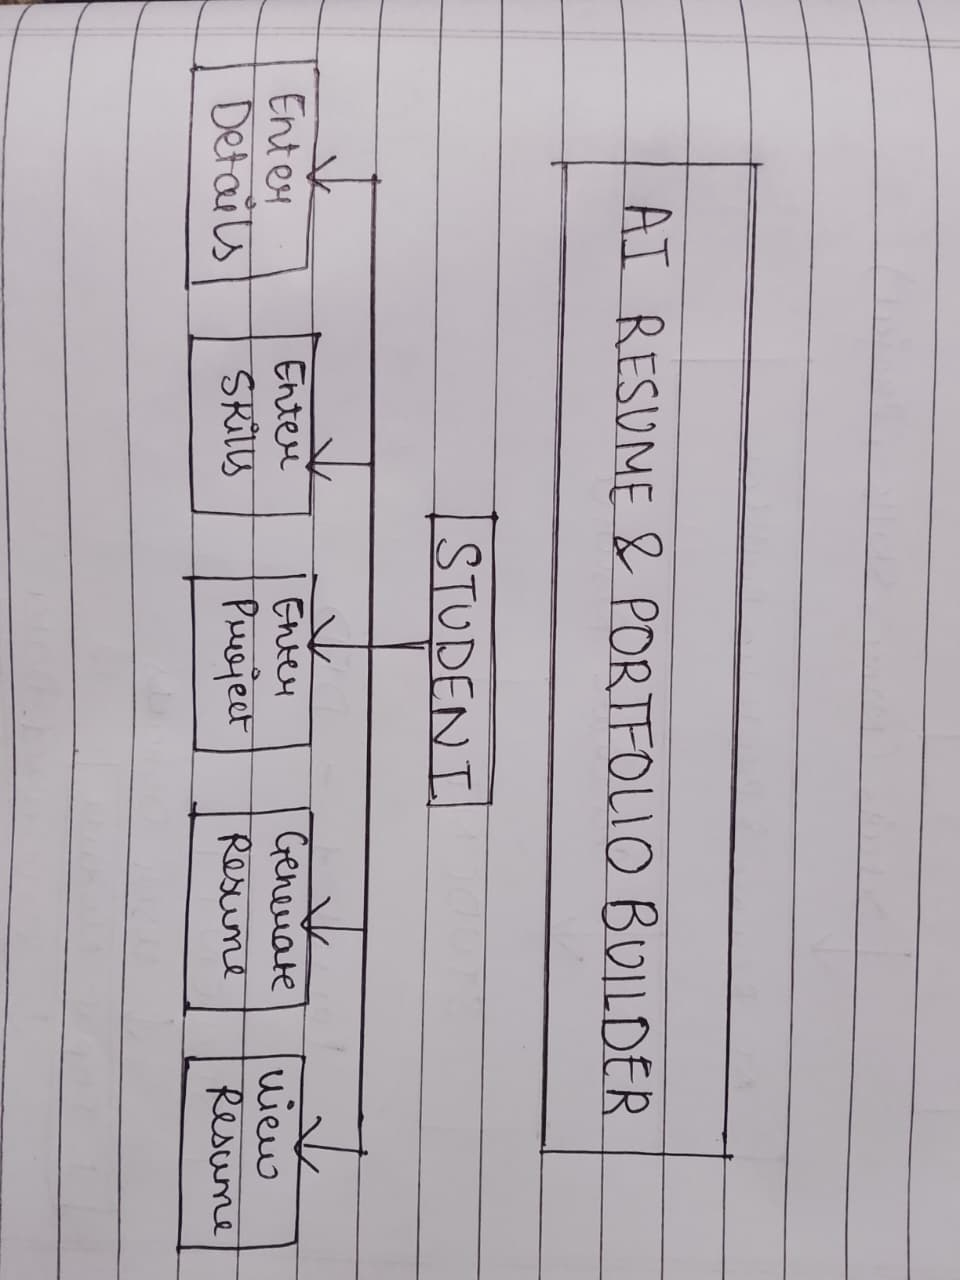 AI RESUME & PORTFOLIO BUILDER
STUDENT
Enter
Details
Enter
Skills
Enter
Project
Generate
Resume
View
Resume